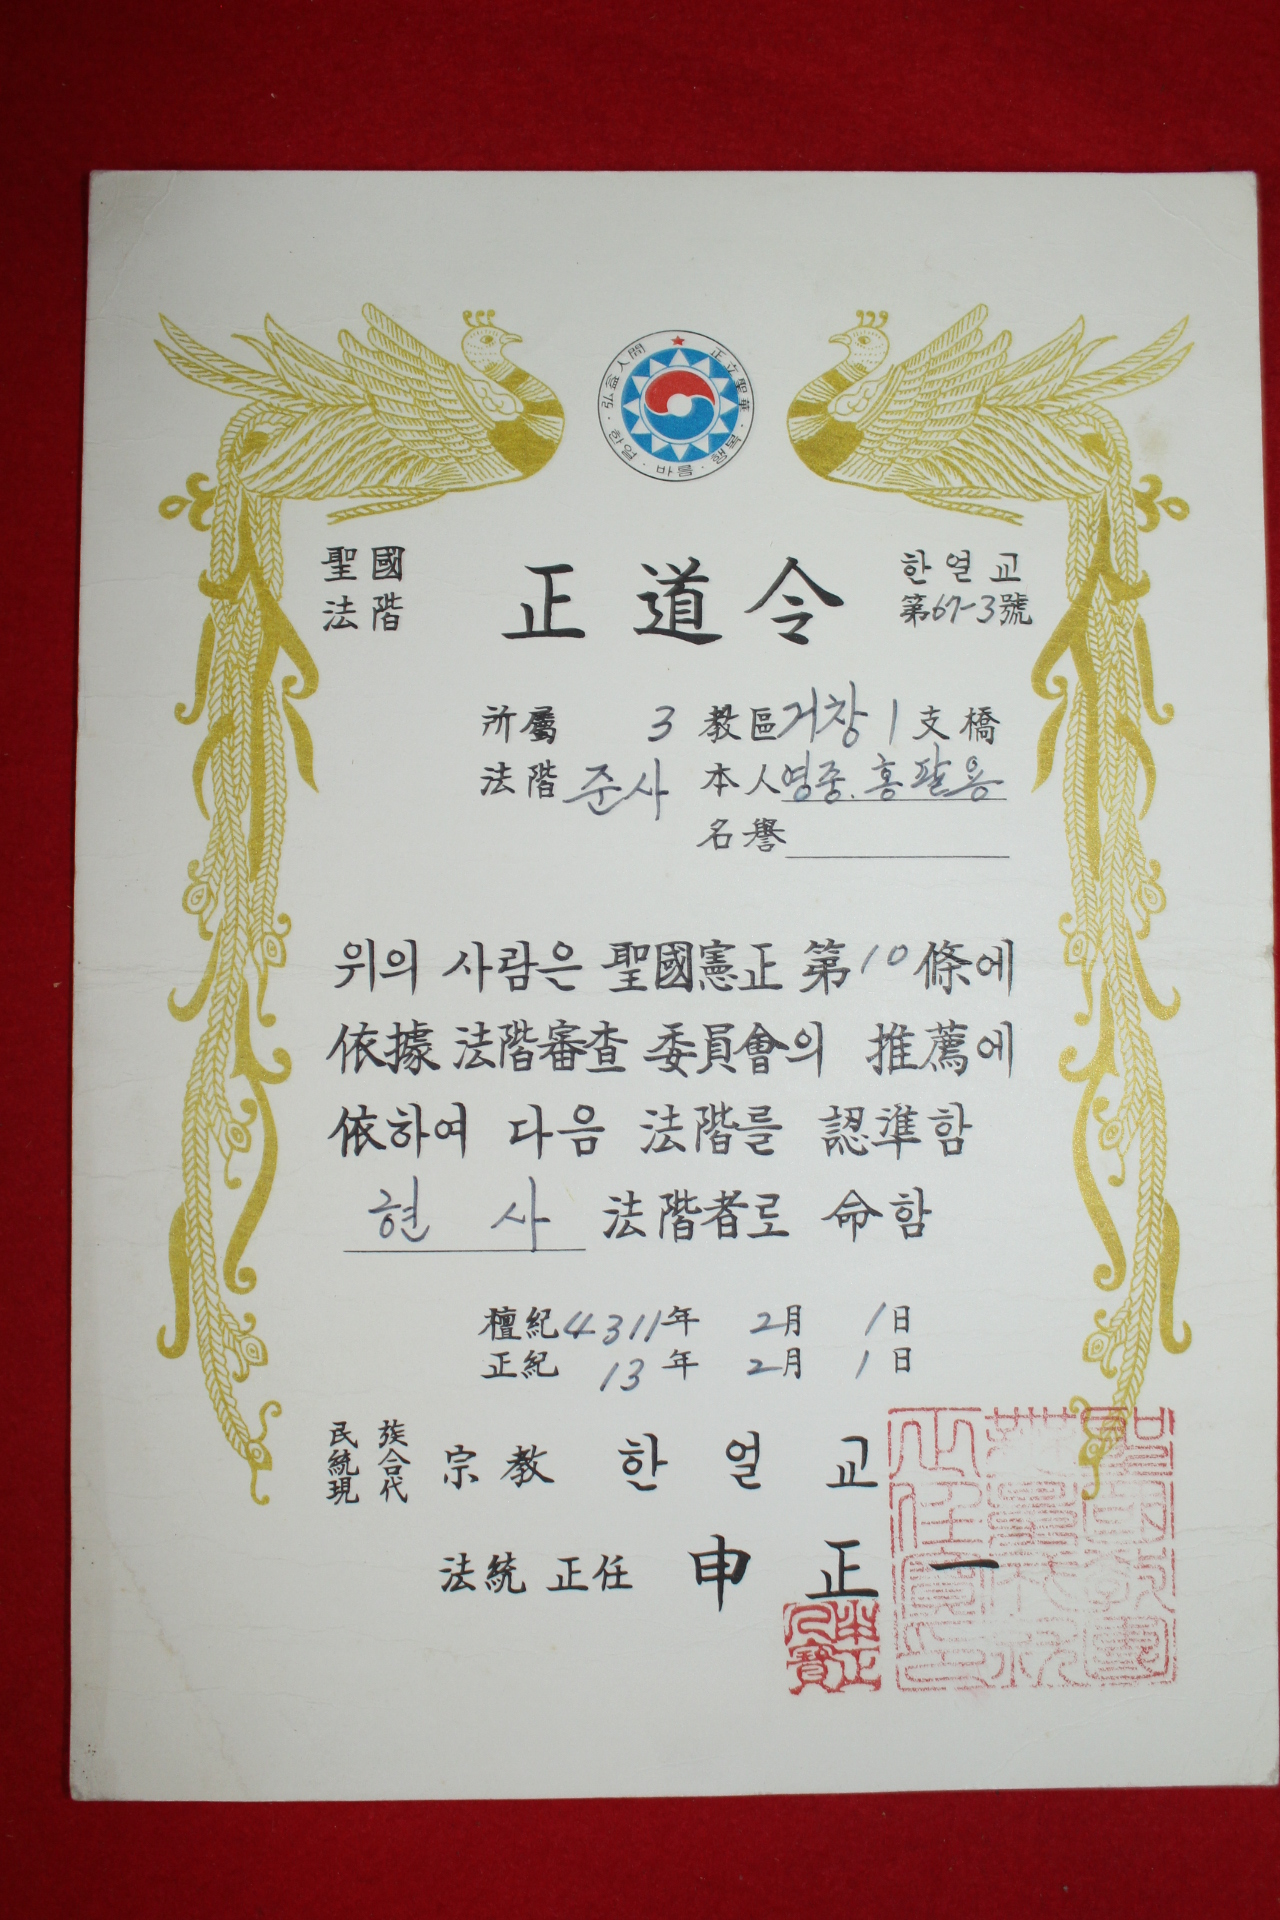 弘益人間 · 正立聖華 · 독행 · 바름 · 명랑
聖國 正道令 한얼교
法階 第67-3號
所屬 3 敎區 거창 1 支橋
法階 준사 本人 영중. 홍팔용
名譽
위의 사람은 聖國憲正 第10條에
依據 法階審査 委員會의 推薦에
依하여 다음 法階를 認準함
현 사 法階者로 命함
檀紀 4311年 2月 1日
正紀 13年 2月 1日
民族
統合 宗敎 한얼교
現代
法統 正任 申正一